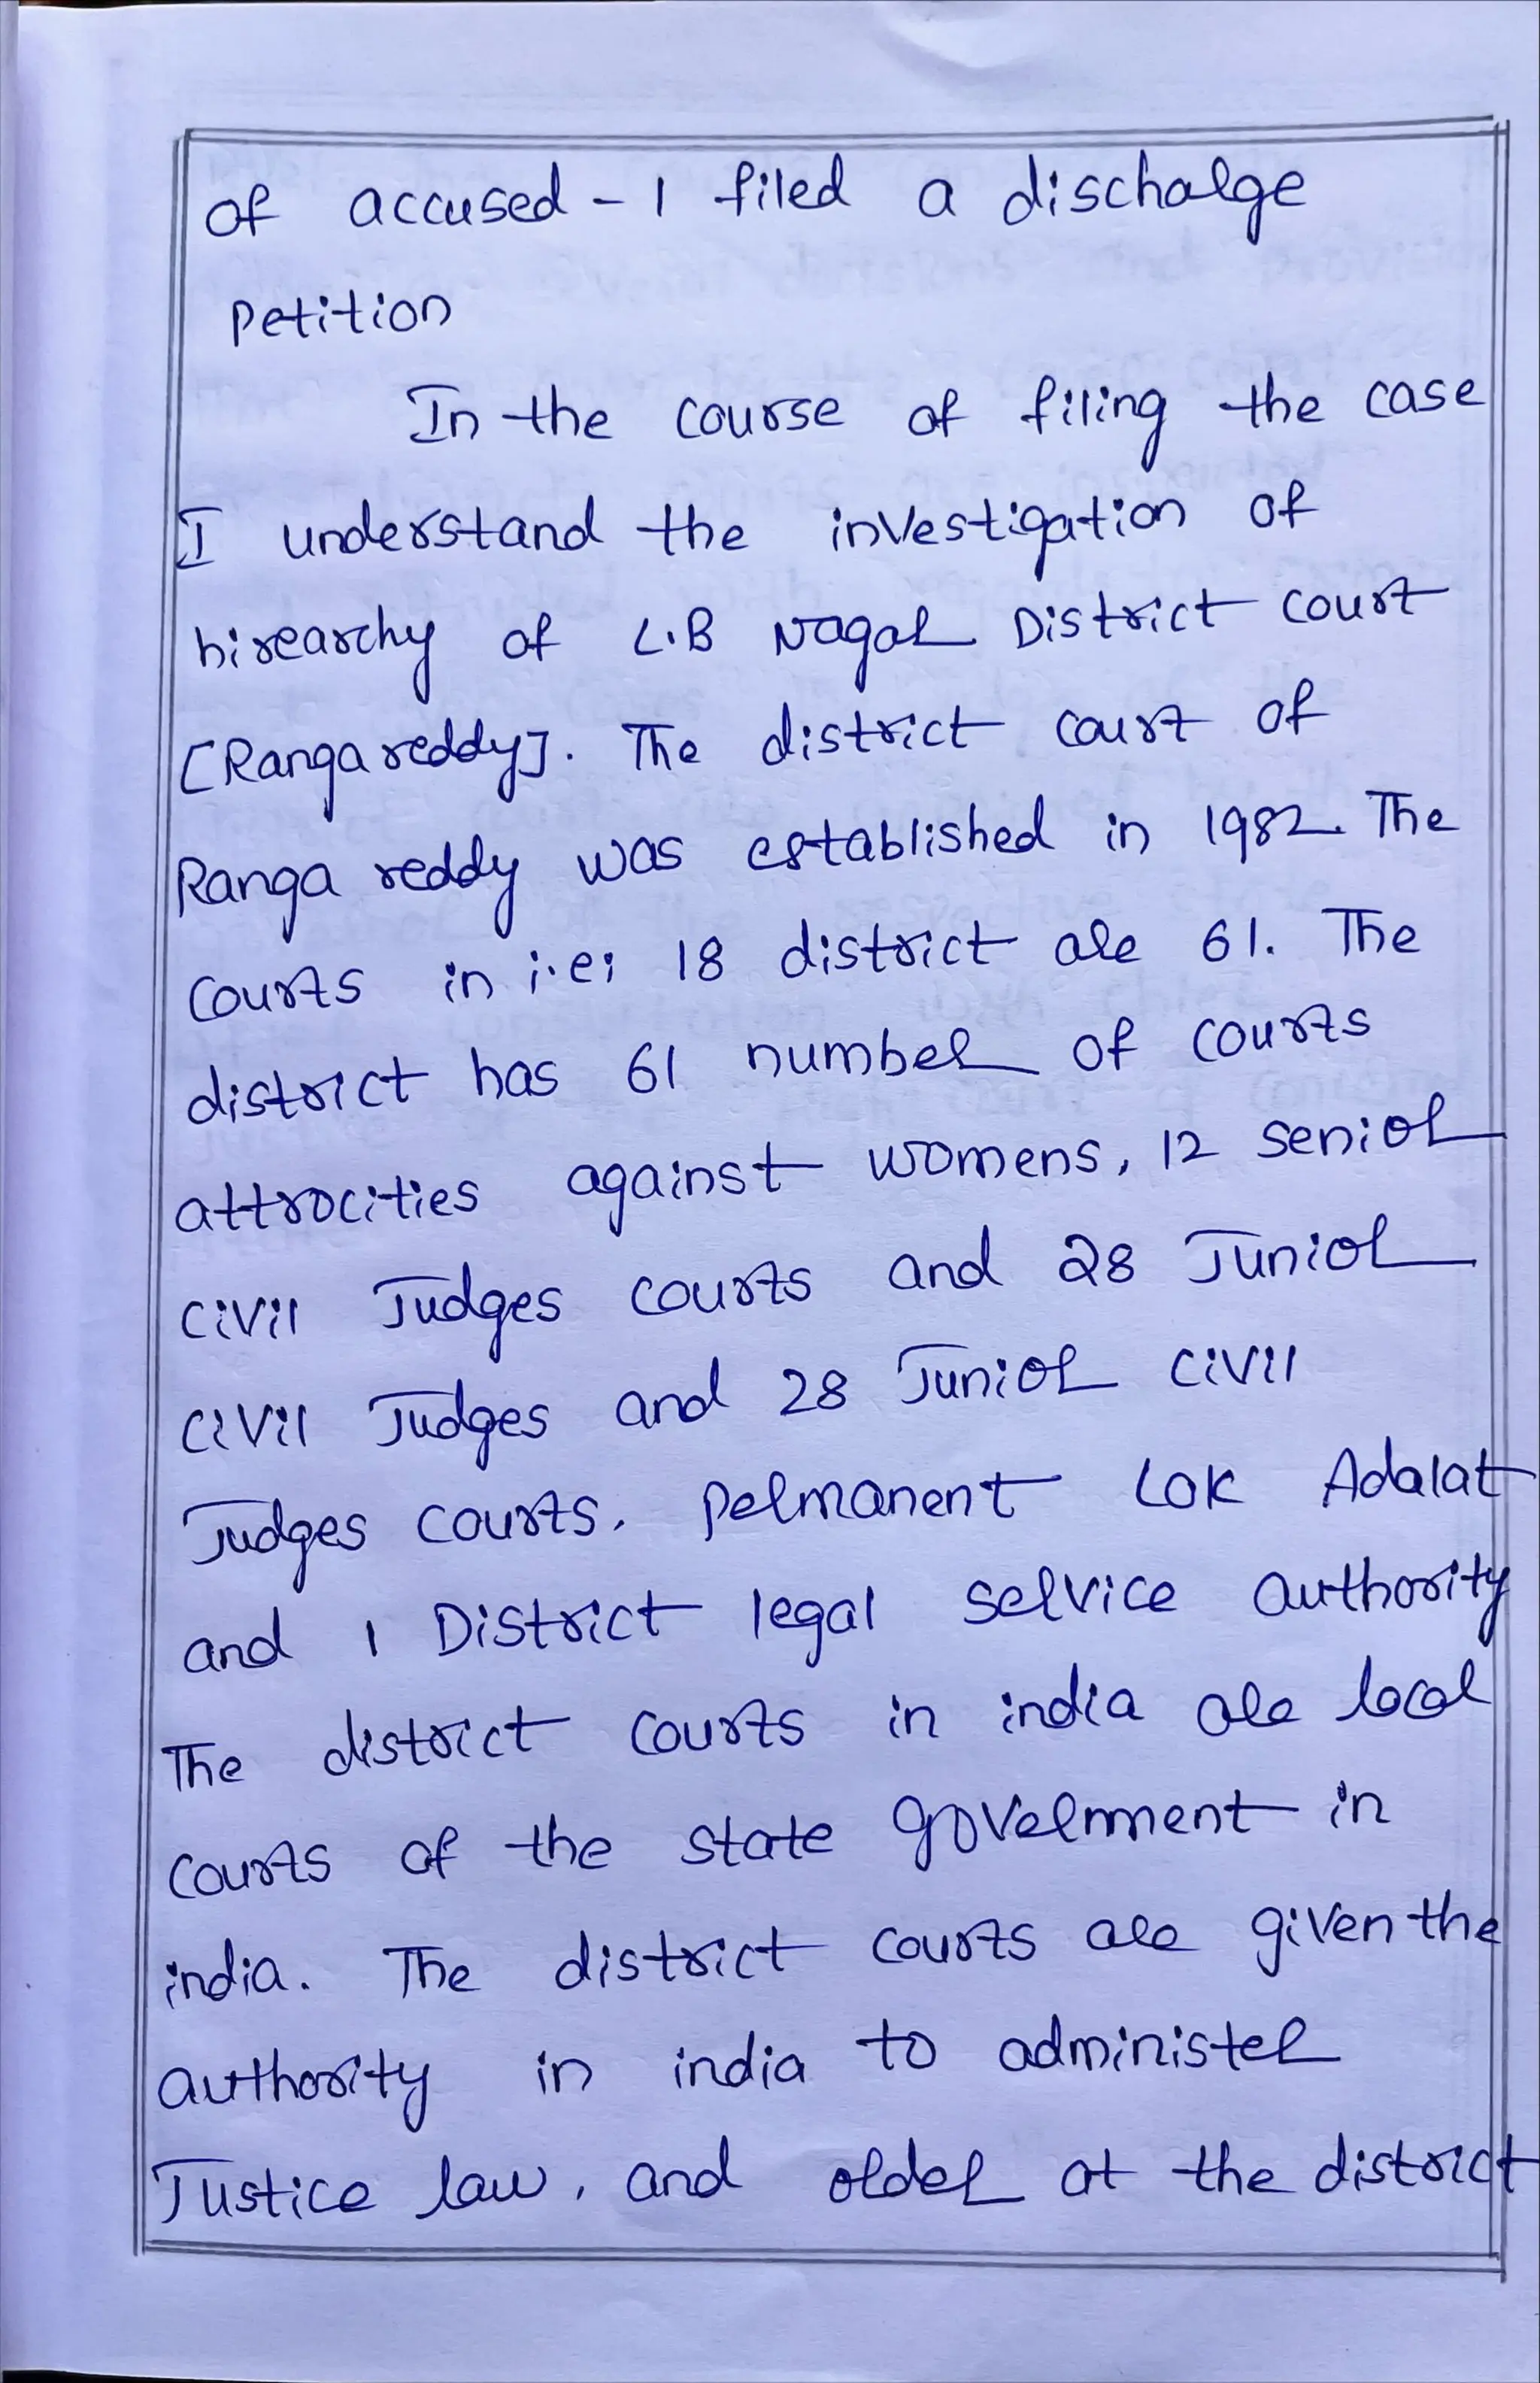 of accused - 1 filed a discharge
Petition
In the course of filing the case
I understand the investigation of
hirearchy of L.B Nagar District court
[Ranga reddy]. The district court of
Ranga reddy was established in 1982. The
Courts in i.e; 18 district are 61. The
district has 61 number of courts
attrocities against womens, 12 senior
civil Judges courts and 28 Junior
civil Judges and 28 Junior civil
Judges courts. Permanent Lok Adalat
and 1 District legal service authority
The district courts in india are local
courts of the state government in
india. The district courts are given the
authority in india to administer
Justice law, and order at the district